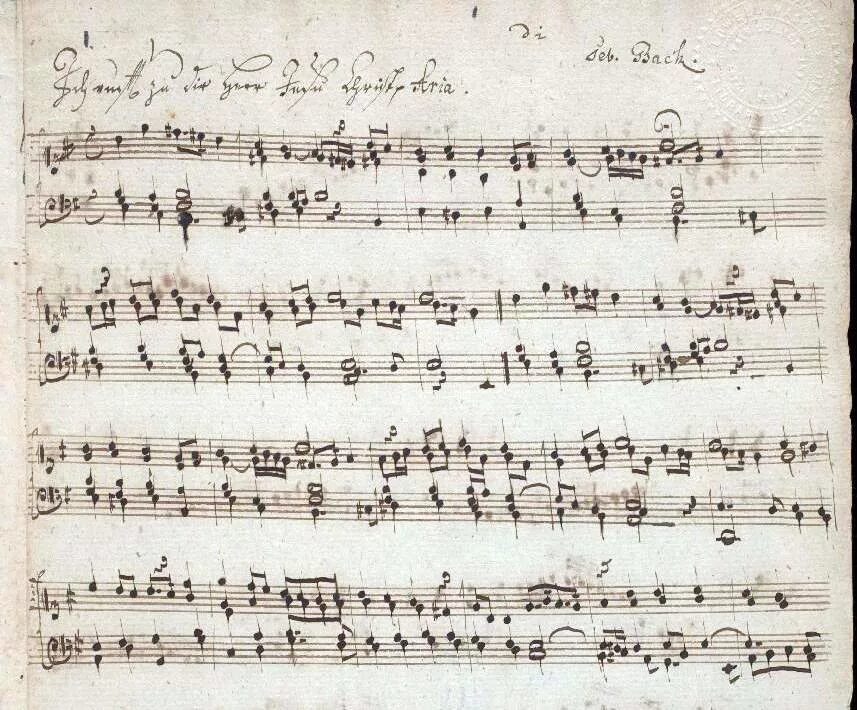 di
Seb. Bach.
Ich ruff zu dir Herr Jesu Christ, Aria.